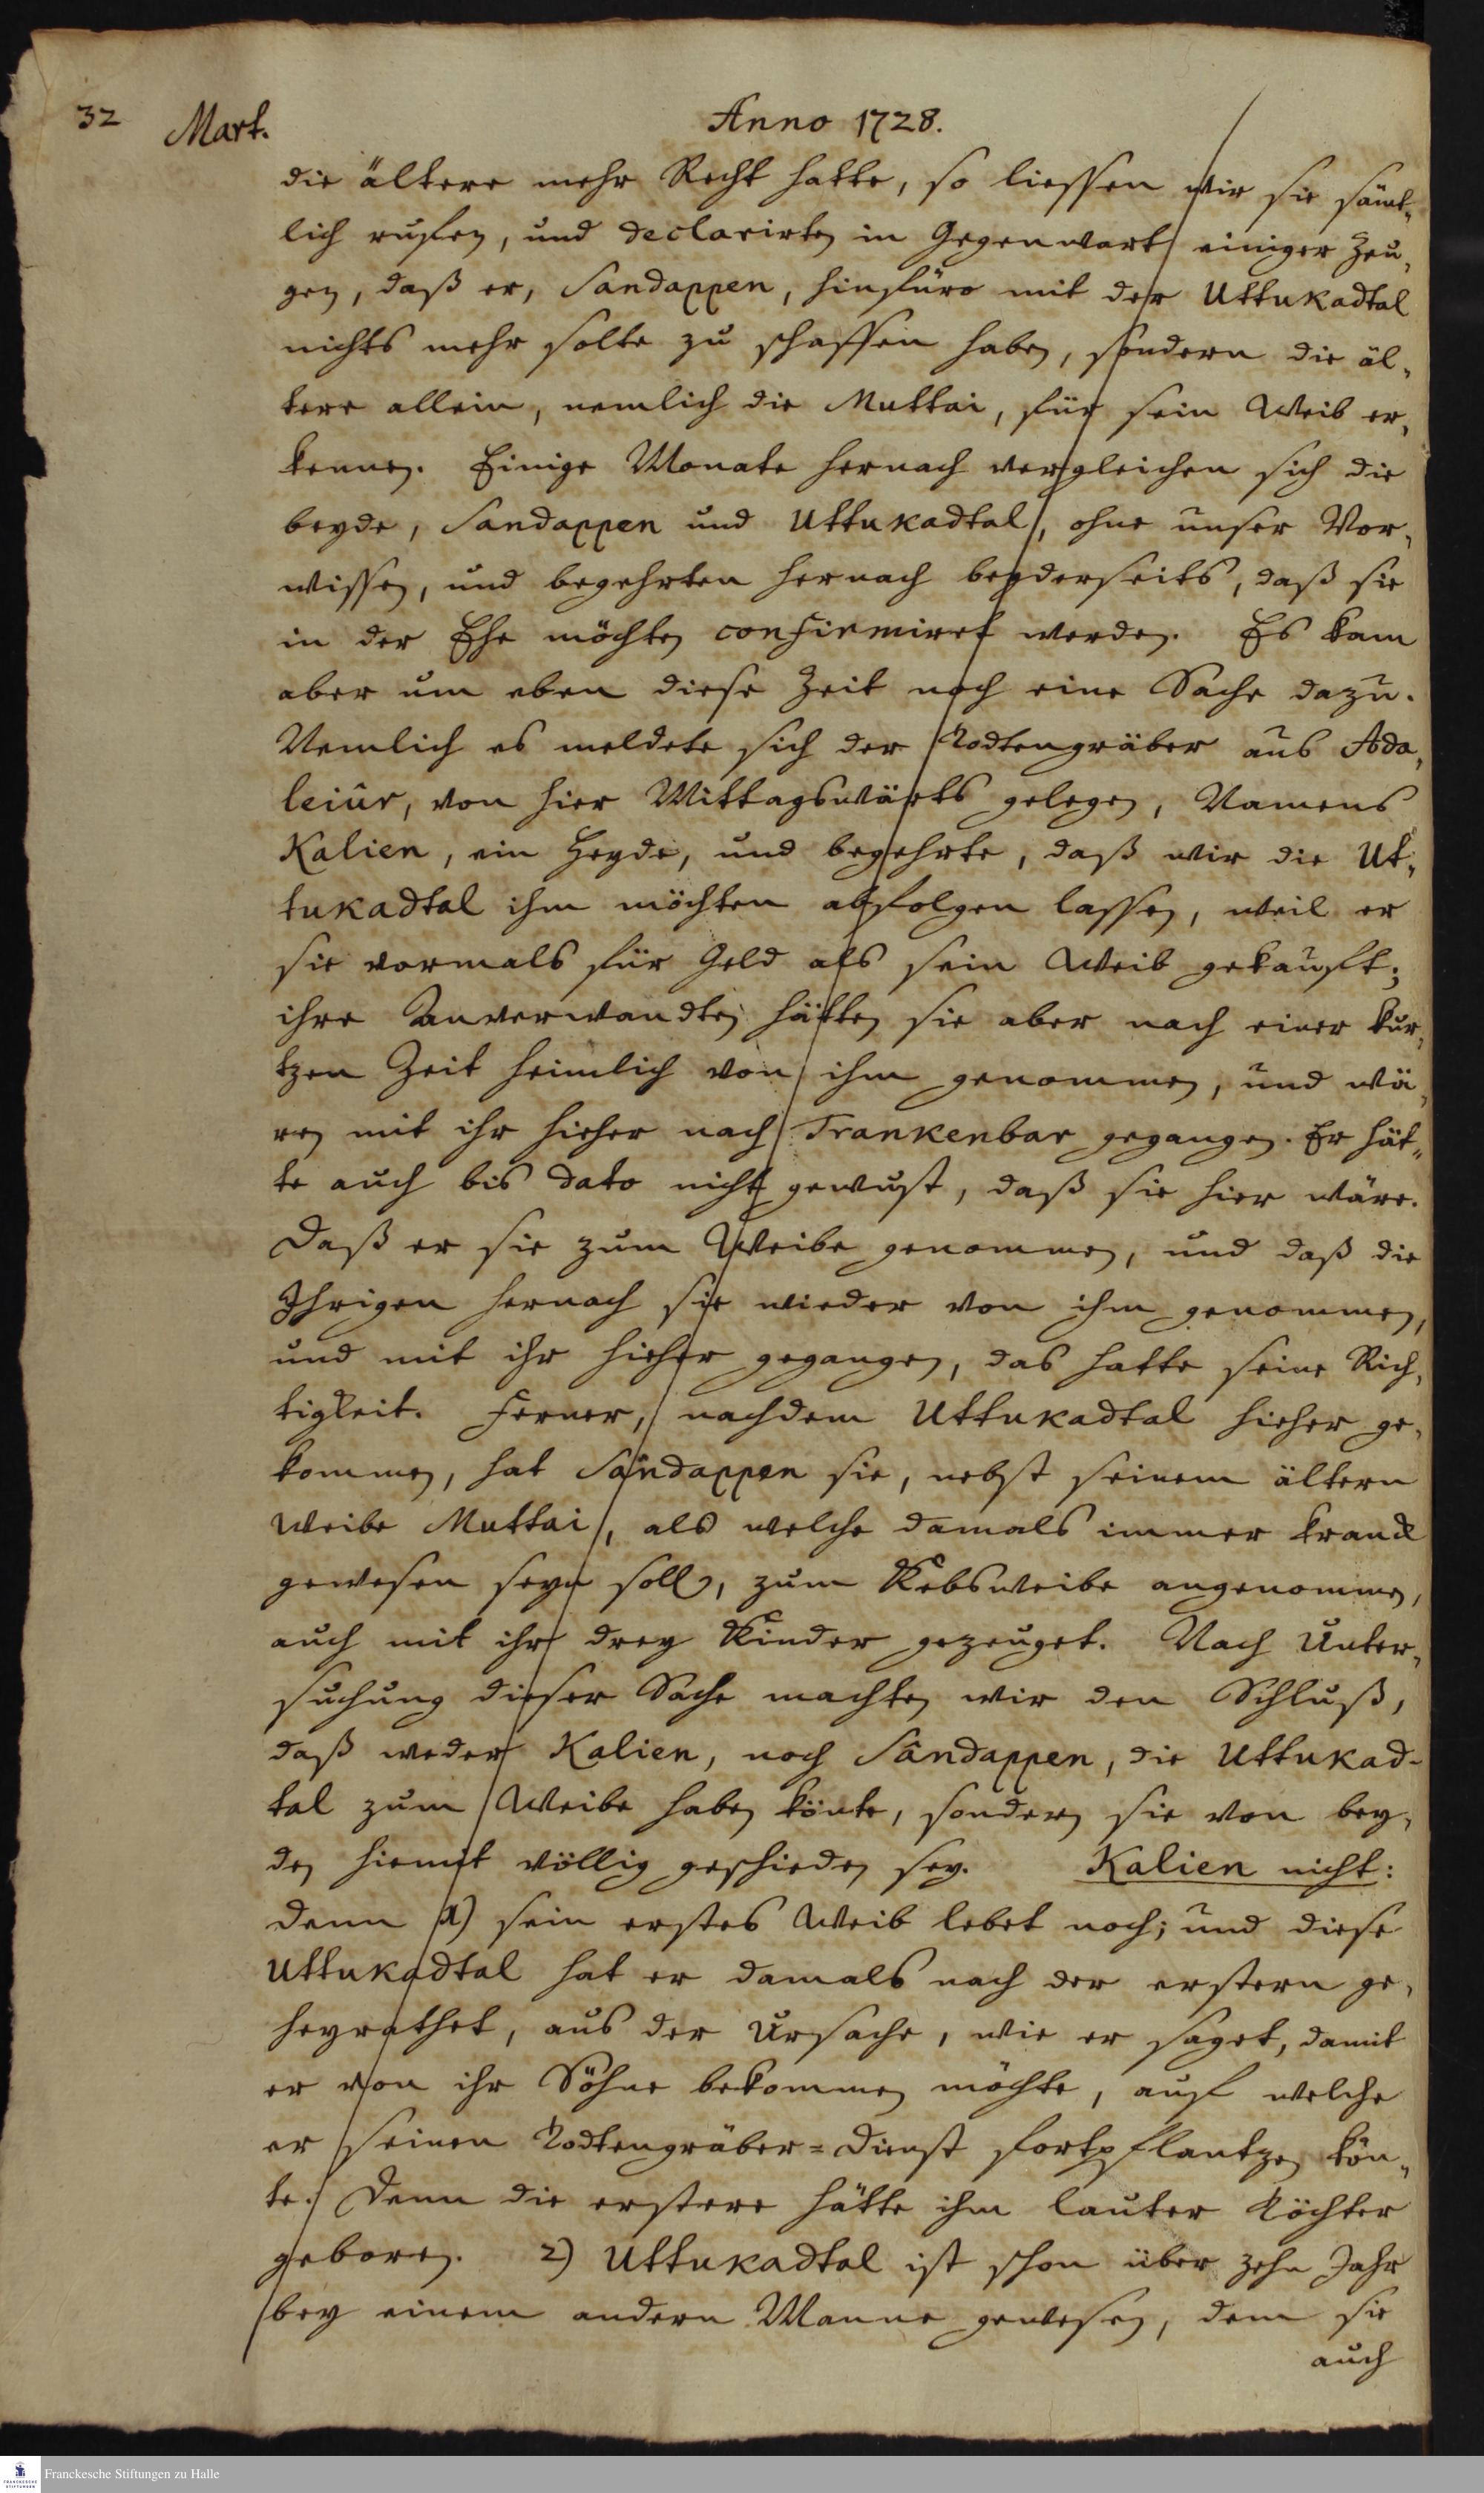 32 Mart. Anno 1728.
die ältere mehr Recht hatte, so liessen wir sie sämt-
lich ruffen, und declarirten in Gegenwart einiger Zeu-
gen, daß er, Sandappen, hinfüro mit der Uttukadtal
nichts mehr solte zu schaffen haben, sondern die äl-
tere allein, nemlich die Muttai, für sein Weib er-
kennen. Einige Monate hernach vergleichen sich die
beyde, Sandappen und Uttukadtal, ohne unser Vor-
wissen, und begehrten hernach beyderseits, daß sie
in der Ehe möchten confirmiret werden. Es kam
aber um eben diese Zeit noch eine Sache dazu.
Nemlich es meldete sich der Todtengräber aus Ada-
leiûr, von hier Mittagswärts gelegen, Namens
Kalien, ein Heyde, und begehrte, daß wir die Ut-
tukadtal ihm möchten abfolgen lassen, weil er
sie vormals für Geld als sein Weib gekaufft;
ihre Anverwandten hätten sie aber nach einer kur-
tzen Zeit heimlich von ihm genommen, und wä-
ren mit ihr hieher nach Trankenbar gegangen. Er hät-
te auch bis dato nicht gewust, daß sie hier wäre.
Daß er sie zum Weibe genommen, und daß die
Ihrigen hernach sie wieder von ihm genommen,
und mit ihr hieher gegangen, das hatte seine Rich-
tigkeit. Ferner, nachdem Uttukadtal hieher ge-
kommen, hat Sândappen sie, nebst seinem ältern
Weibe Muttai, als welche damals immer kranck
gewesen seyn soll, zum Kebsweibe angenommen,
auch mit ihr drey Kinder gezeuget. Nach Unter-
suchung dieser Sache machten wir den Schluß,
daß weder Kalien, noch Sândappen, die Uttukad-
tal zum Weibe haben könte, sondern sie von bey-
den hiemit völlig geschieden sey. Kalien nicht:
denn 1) sein erstes Weib lebet noch; und diese
Uttukadtal hat er damals nach der erstern ge-
heyrathet, aus der Ursache, wie er saget, damit
er von ihr Söhne bekommen möchte, auf welche
er seinen Todtengräber-Dienst fortpflantzen kön-
te. Denn die erstere hätte ihm lauter Töchter
geboren. 2) Uttukadtal ist schon über zehn Jahr
bey einem andern Manne gewesen, dem sie
auch
Franckesche Stiftungen zu Halle